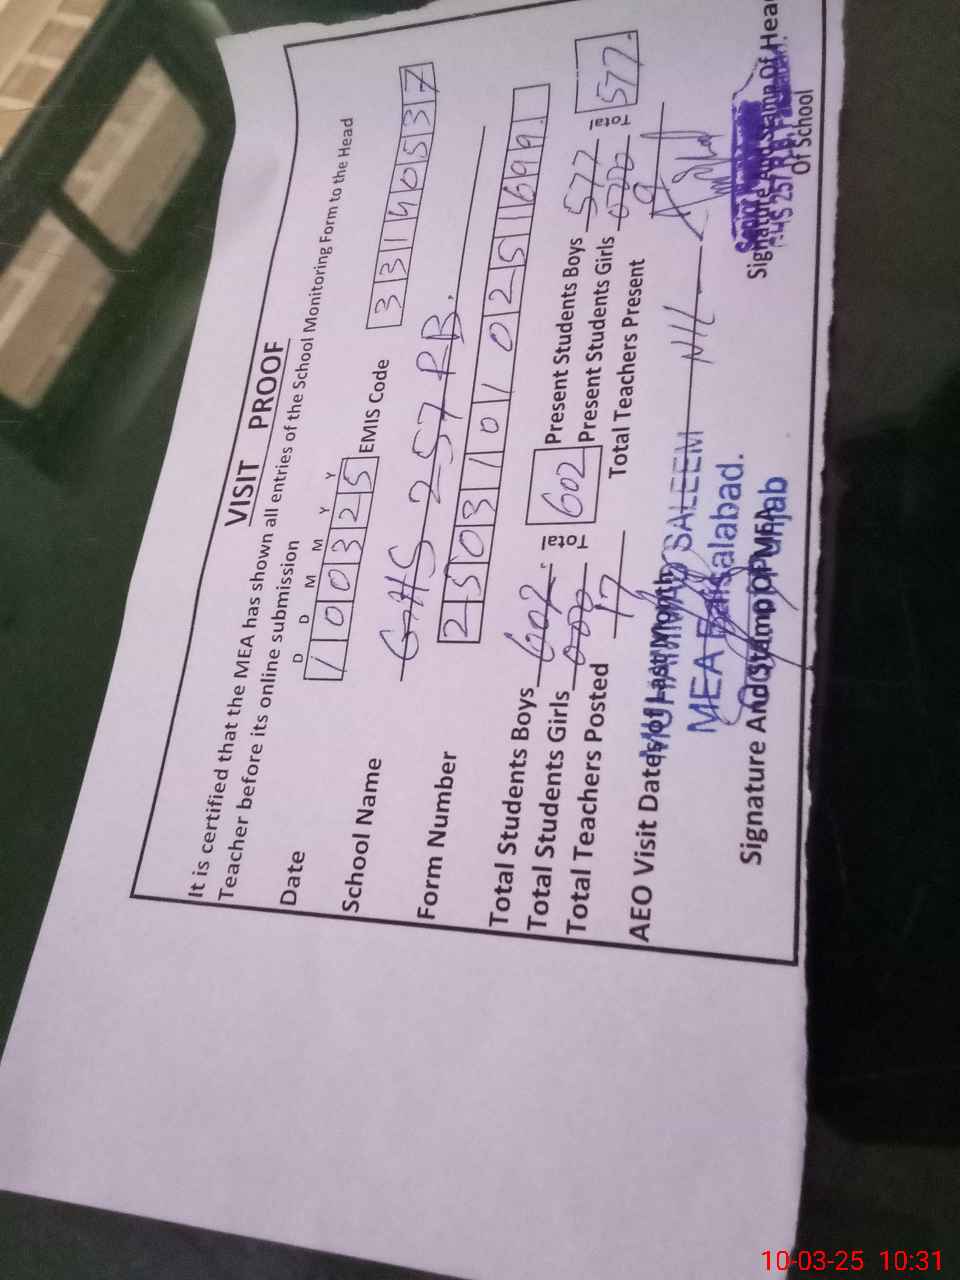 VISIT PROOF
It is certified that the MEA has shown all entries of the School Monitoring Form to the Head
Teacher before its online submission
D D M M Y Y
Date 1 0 0 3 2 5 EMIS Code 3 3 1 4 0 5 3 7
School Name GHS 257 RB.
Form Number 2 5 0 3 1 0 1 0 2 5 1 6 9 9
Total Students Boys 602 Total 602 Present Students Boys 577 Total 577
Total Students Girls 000 Present Students Girls 000
Total Teachers Posted 17 Total Teachers Present 9
AEO Visit Dates of Last Month Nil
MUHAMMAD SALEEM
MEA Faisalabad.
Signature And Stamp Of MEA
Punjab
Signature And Stamp Of Head
Of School